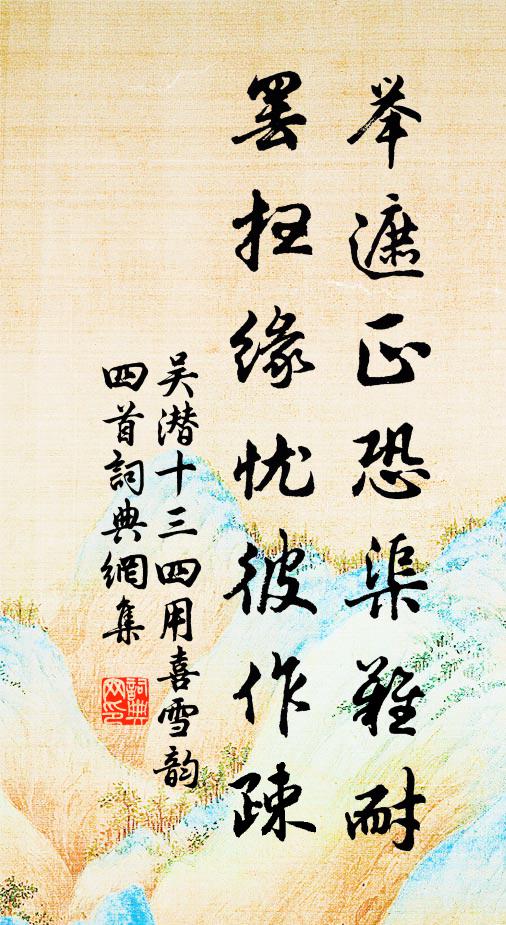 举遮正恐渠难耐
罢扫缘忧彼作疎
吴潜十三四用喜雪韵
四首詞典網集
詞典网印